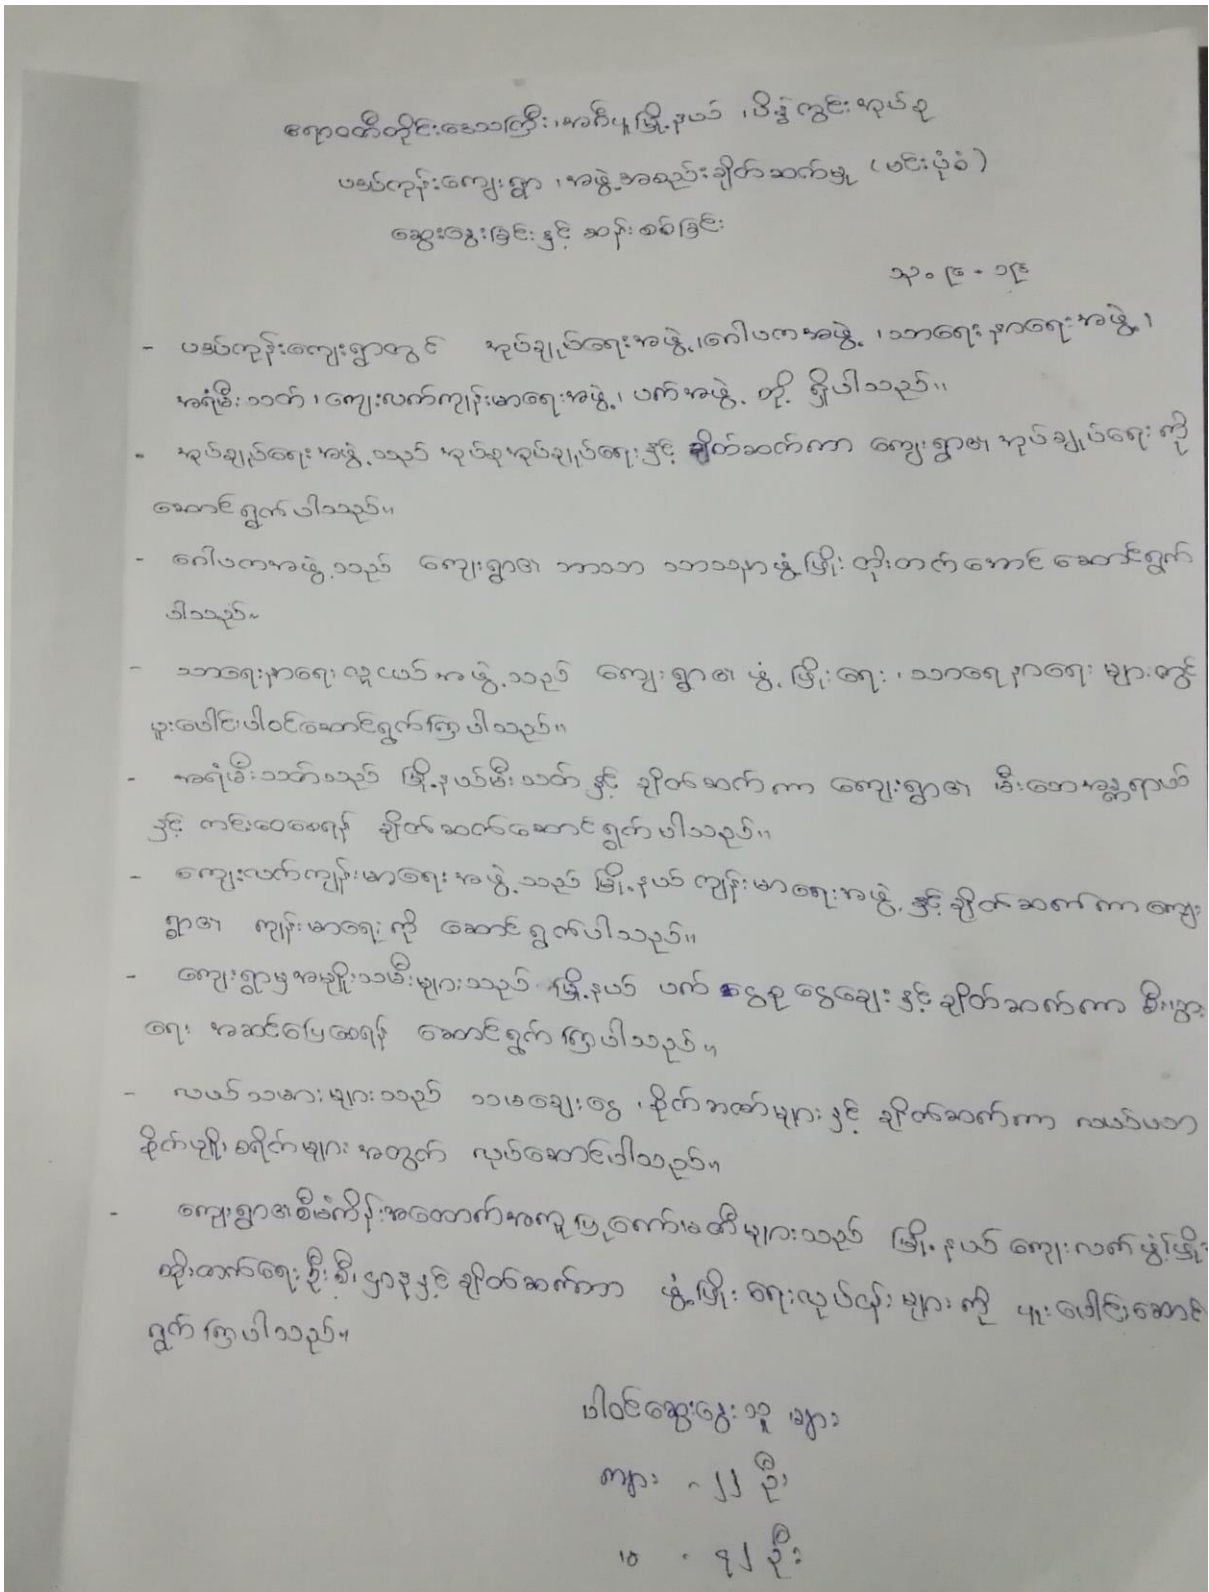 ဧရာဝတီတိုင်းဒေသကြီး၊ အင်္ဂပူမြို့နယ် ၊ပိန္နဲကွင်းအုပ်စု
ပဒပ်ကုန်းကျေးရွာ ၊ အဖွဲ့အစည်းချိတ်ဆက်မှု (ဗင်းပုံစံ)
ဆွေးနွေးခြင်းနှင့် ဆန်းစစ်ခြင်း
၁၉
- ပဒပ်ကုန်းကျေးရွာတွင် အုပ်ချုပ်ရေးအဖွဲ့၊ ဂေါပကအဖွဲ့ ၊ သာရေးနာရေးအဖွဲ့၊
အရံမီးသတ်၊ ကျေးလက်ကျန်းမာရေးအဖွဲ့၊ ပက်အဖွဲ့ တို့ ရှိပါသည်။
- အုပ်ချုပ်ရေးအဖွဲ့သည် အုပ်စုအုပ်ချုပ်ရေးနှင့် ချိတ်ဆက်ကာ ကျေးရွာ၏ အုပ်ချုပ်ရေးကို
ဆောင်ရွက်ပါသည်။
- ဂေါပကအဖွဲ့သည် ကျေးရွာ၏ ဘာသာ သာသနာဖွံ့ဖြိုးတိုးတက်အောင် ဆောင်ရွက်
ပါသည်။
- သာရေးနာရေးလူငယ်အဖွဲ့သည် ကျေးရွာ၏ ဖွံ့ဖြိုးရေး ၊ သာရေနာရေးများတွင်
ပူးပေါင်းပါဝင်ဆောင်ရွက်ကြပါသည်။
- အရံမီးသတ်သည် မြို့နယ်မီးသတ်နှင့် ချိတ်ဆက်ကာ ကျေးရွာ၏ မီးဘေးအန္တရာယ်
နှင့် ကင်းဝေးစေရန် ချိတ်ဆက်ဆောင်ရွက်ပါသည်။
- ကျေးလက်ကျန်းမာရေးအဖွဲ့သည် မြို့နယ်ကျန်းမာရေးအဖွဲ့နှင့်ချိတ်ဆက်ကာ ကျေး
ရွာ၏ ကျန်းမာရေးကို ဆောင်ရွက်ပါသည်။
- ကျေးရွာမှအမျိုးသမီးများသည် မြို့နယ် ပက် ငွေစုငွေချေးနှင့်ချိတ်ဆက်ကာ စီးပွား
ရေး အဆင်ပြေစေရန် ဆောင်ရွက်ကြပါသည်။
- လယ်သမားများသည် သမချေးငွေ ၊ စိုက်ဘဏ်များနှင့် ချိတ်ဆက်ကာ လယ်ယာ
စိုက်ပျိုးစရိတ်များအတွက် လုပ်ဆောင်ပါသည်။
- ကျေးရွာ၏စီမံကိန်းအထောက်အကူပြုကော်မတီများသည် မြို့နယ်ကျေးလက်ဖွံ့ဖြိုး
တိုးတက်ရေးဦးစီးဌာနနှင့်ချိတ်ဆက်ကာ ဖွံ့ဖြိုးရေးလုပ်ငန်းများကို ပူးပေါင်းဆောင်
ရွက်ကြပါသည်။
ပါဝင်ဆွေးနွေးသူများ
ကျား - ၂၂ ဦး
မ - ၇၂ ဦး